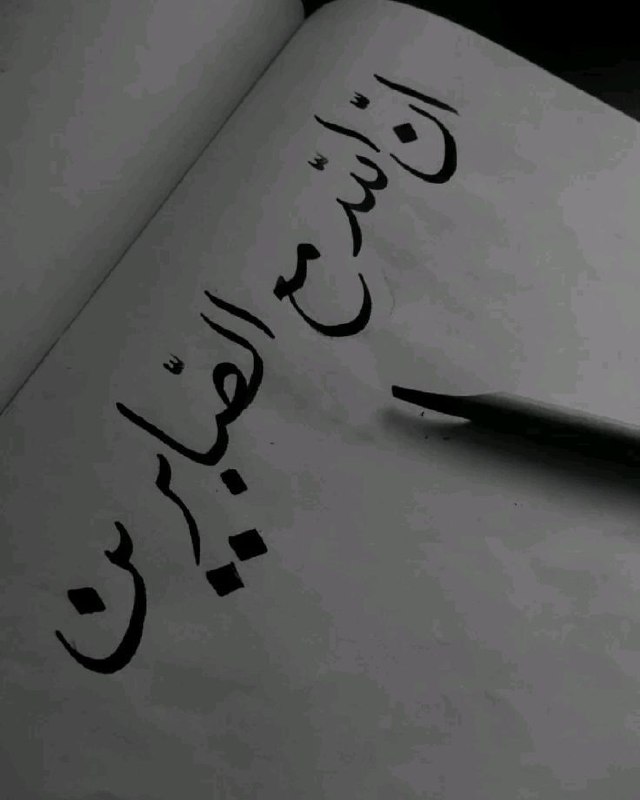 انّ اللّه مع الصّابرین